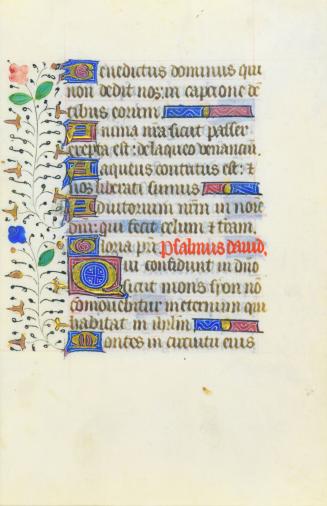 Benedictus dominus qui
non dedit nos: in captione de
tibus eorum
Anima nra sicut passer
erepta est: de laqueo venanciu.
Laqueus contritus est: &
nos liberati sumus
Adiutorium nrm in nomi
dni: qui fecit celum & tram.
Gloria pri Psalmus david.
Qui confidunt in dno
sicut mons syon no
comovebitur in eternum qui
habitat in ihrlm
Montes in circuitu eius